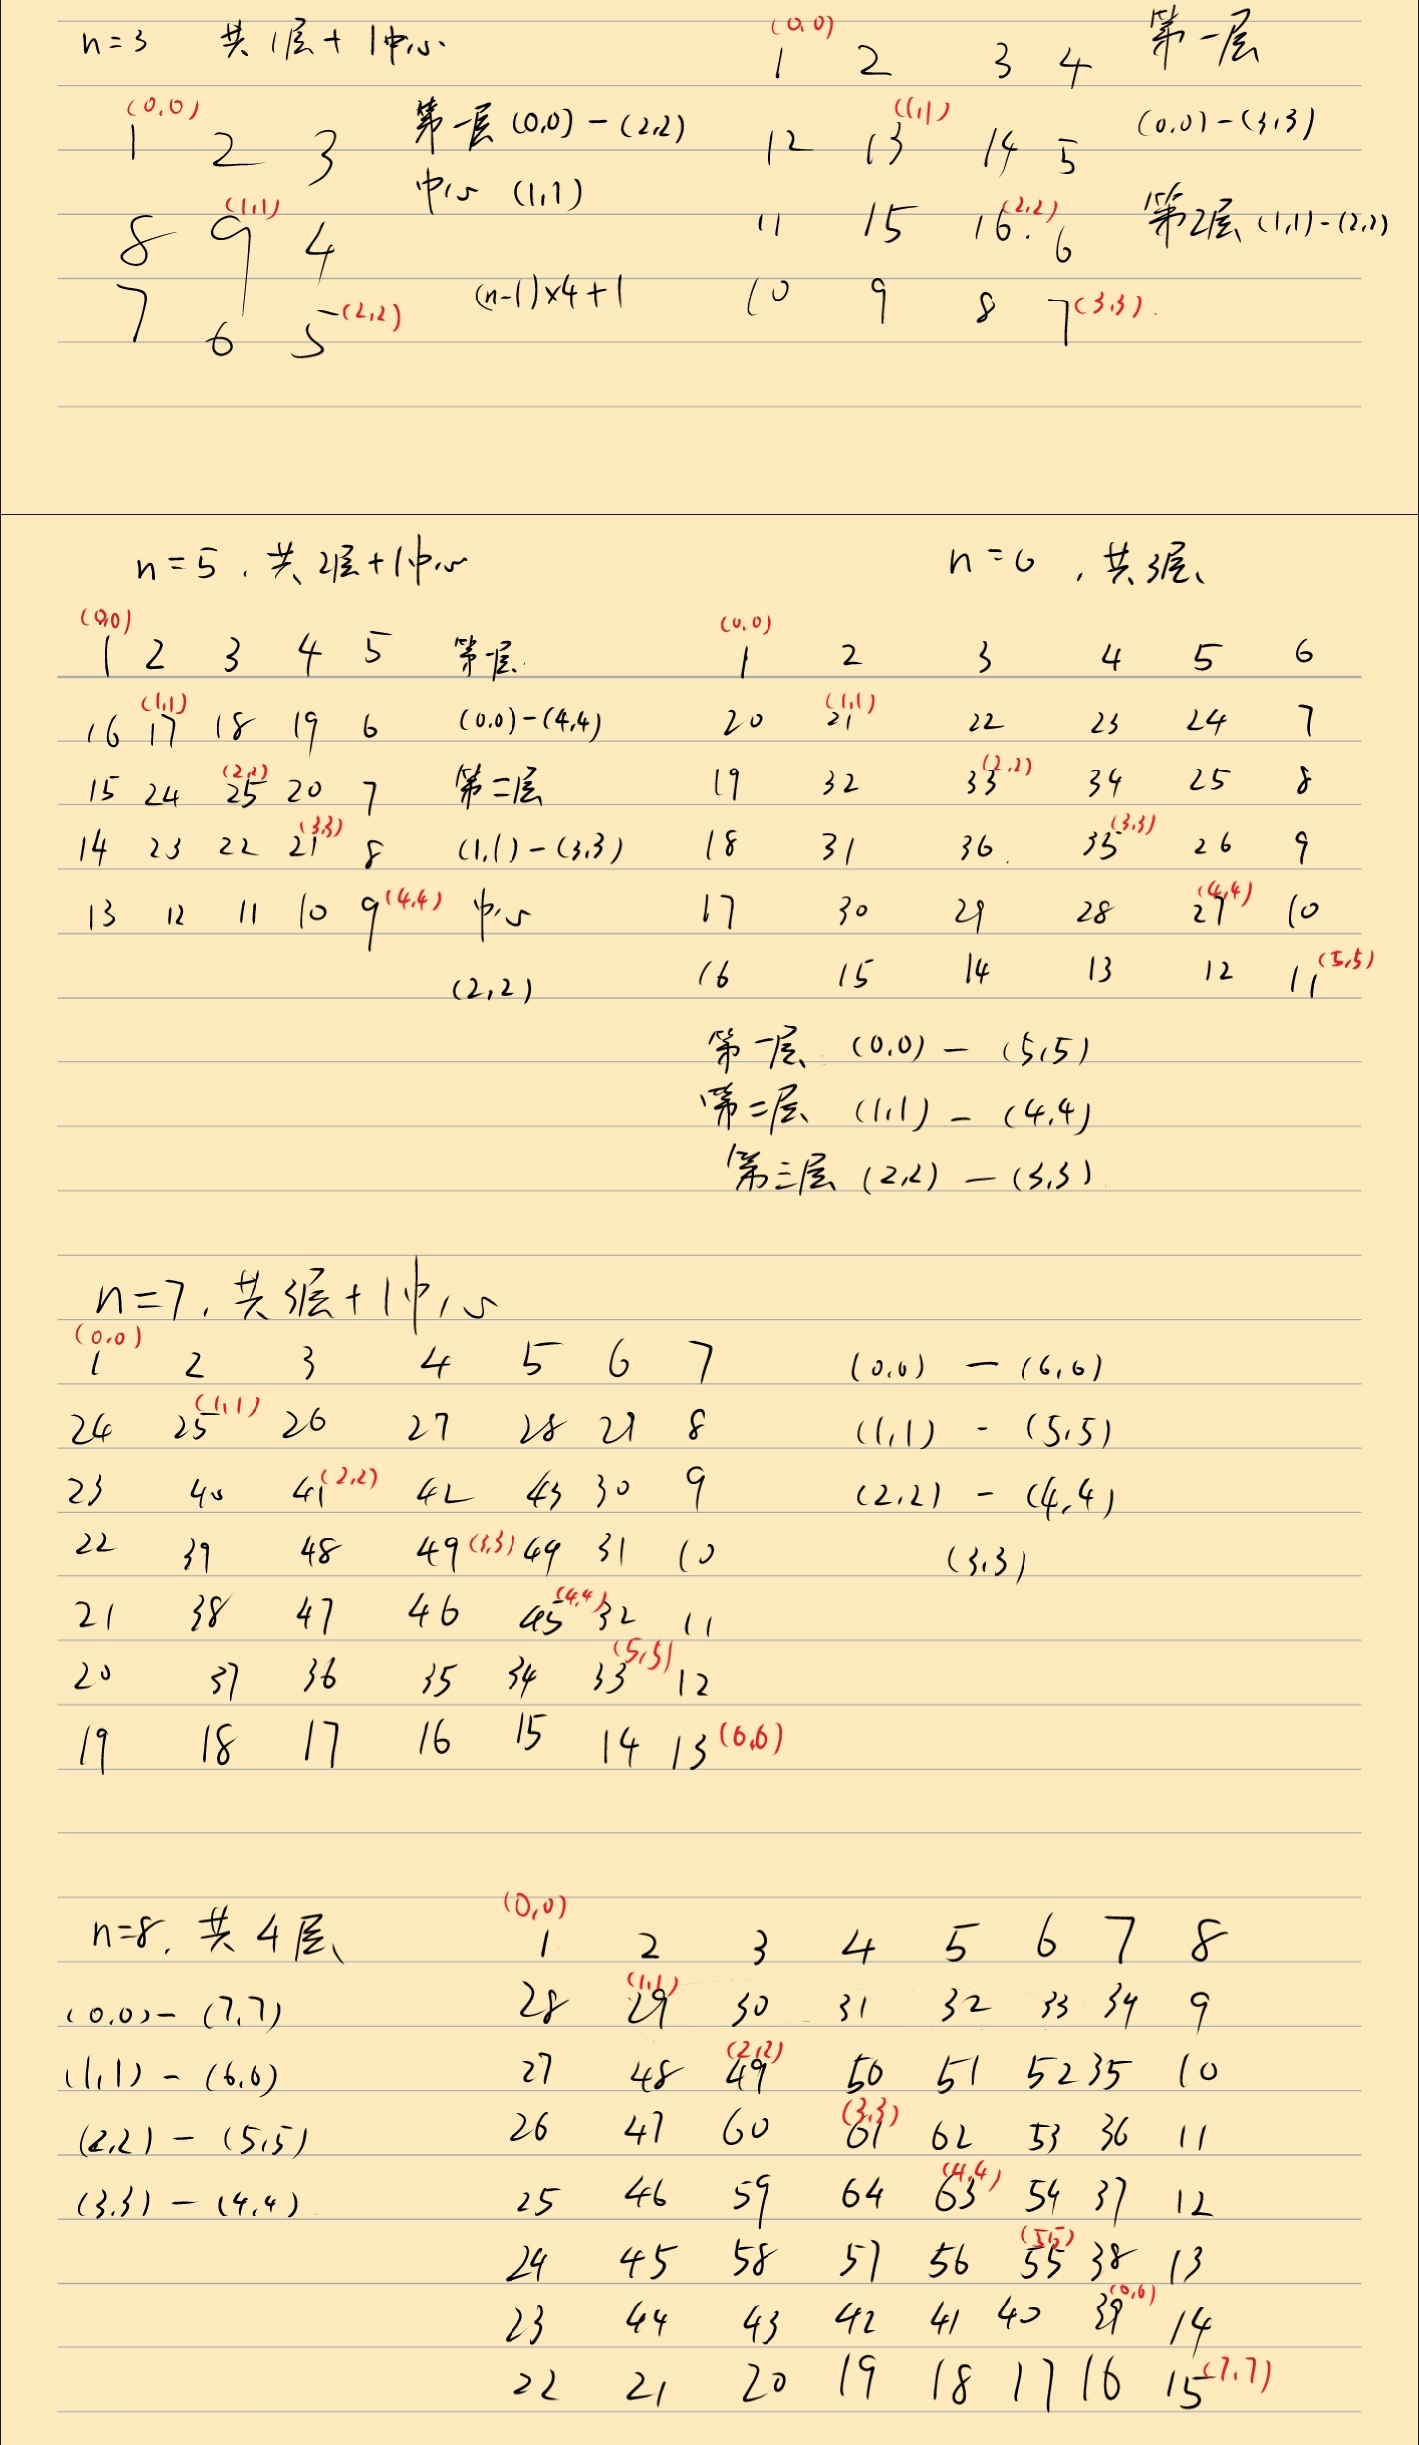 n=3 共1层+1中心
(0,0)
1 2 3
(1,1)
8 9 4
7 6 5 (2,2)
第一层 (0,0) - (2,2)
中心 (1,1)
(n-1)×4+1
(0,0)
1 2 3 4
(1,1)
12 13 14 5
11 15 16. (2,2) 6
10 9 8 7 (3,3).
第一层
(0,0) - (3,3)
第2层 (1,1) - (2,2)
n=5. 共2层+1中心
(0,0)
1 2 3 4 5
(1,1)
16 17 18 19 6
(2,2)
15 24 25 20 7
(3,3)
14 23 22 21 8
13 12 11 10 9 (4,4)
第一层.
(0,0) - (4,4)
第二层
(1,1) - (3,3)
中心
(2,2)
n=6 , 共3层、
(0,0)
1 2 3 4 5 6
(1,1)
20 21 22 23 24 7
(2,2)
19 32 33 34 25 8
(3,3)
18 31 36. 35 26 9
(4,4)
17 30 29 28 27 10
16 15 14 13 12 11 (5,5)
第一层、 (0,0) - (5,5)
第二层、 (1,1) - (4,4)
第三层 (2,2) - (3,3)
n=7. 共3层+1中心
(0,0)
1 2 3 4 5 6 7
(1,1)
24 25 26 27 28 29 8
23 40 41 (2,2) 42 43 30 9
22 39 48 49 (3,3) 49 31 10
(4,4)
21 38 47 46 45 32 11
(5,5)
20 37 36 35 34 33 12
19 18 17 16 15 14 13 (6,6)
(0,0) - (6,6)
(1,1) - (5,5)
(2,2) - (4,4)
(3,3)
n=8. 共4层、
(0,0) - (7,7)
(1,1) - (6,6)
(2,2) - (5,5)
(3,3) - (4,4)
(0,0)
1 2 3 4 5 6 7 8
(1,1)
28 29 30 31 32 33 34 9
(2,2)
27 48 49 50 51 52 35 10
(3,3)
26 47 60 61 62 53 36 11
(4,4)
25 46 59 64 63 54 37 12
(5,5)
24 45 58 57 56 55 38 13
(6,6)
23 44 43 42 41 40 39 14
22 21 20 19 18 17 16 15 (7,7)